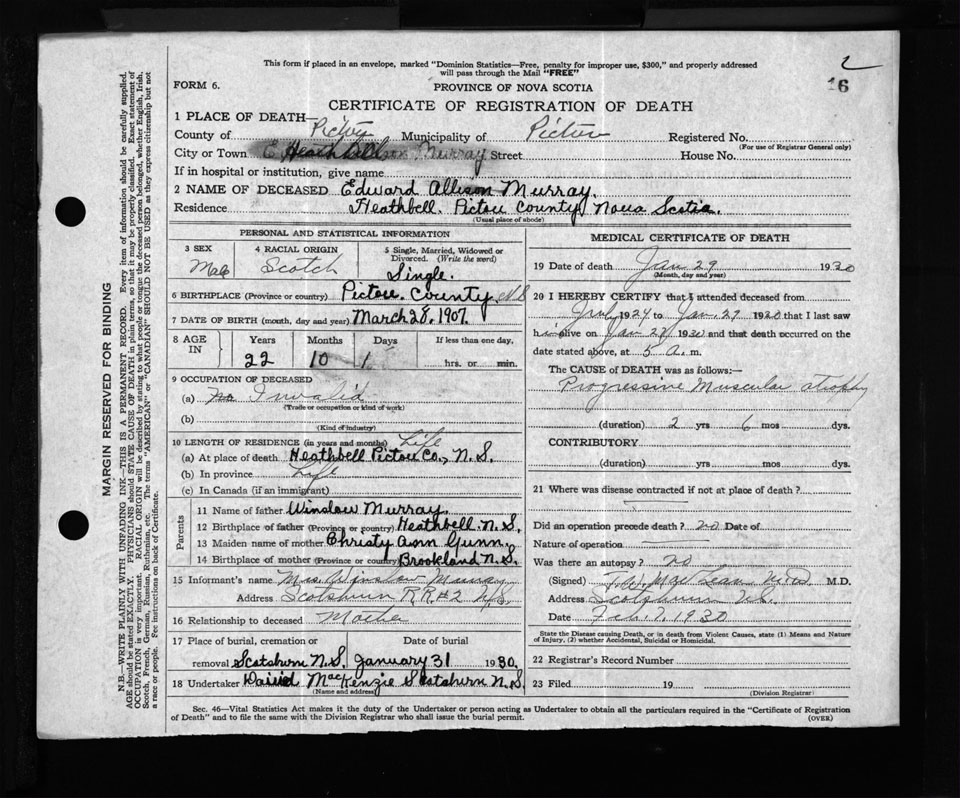 2
16
This form if placed in an envelope, marked "Dominion Statistics—Free, penalty for improper use, $300," and properly addressed
will pass through the Mail "FREE"
FORM 6.
PROVINCE OF NOVA SCOTIA
CERTIFICATE OF REGISTRATION OF DEATH
1 PLACE OF DEATH—
County of Pictou Municipality of Pictou Registered No.
(For use of Registrar General only)
City or Town Heathbell Murray Street House No.
If in hospital or institution, give name
2 NAME OF DECEASED Edward Allison Murray.
Residence Heathbell. Pictou County, Nova Scotia.
(Usual place of abode)
PERSONAL AND STATISTICAL INFORMATION
3 SEX 4 RACIAL ORIGIN 5 Single, Married, Widowed or Divorced. (Write the word)
Male Scotch Single.
6 BIRTHPLACE (Province or country) Pictou. County. N.S
7 DATE OF BIRTH (month, day and year) March 28, 1907.
8 AGE IN Years Months Days If less than one day,
22 10 1 hrs. or min.
9 OCCUPATION OF DECEASED
(a) Invalid
(Trade or occupation or kind of work)
(b)
(Kind of industry)
10 LENGTH OF RESIDENCE (in years and months) Life
(a) At place of death Heathbell Pictou Co., N.S.
(b) In province Life
(c) In Canada (if an immigrant)
Parents
11 Name of father Winslow Murray.
12 Birthplace of father (Province or country) Heathbell N.S.
13 Maiden name of mother Christy Ann Gunn.
14 Birthplace of mother (Province or country) Brookland N.S.
15 Informant's name Mrs. Winslow Murray
Address Scotsburn R.R#2 N.S.
16 Relationship to deceased Mother
17 Place of burial, cremation or Date of burial
removal Scotsburn N.S. January 31 1930.
18 Undertaker David MacKenzie Scotsburn N.S.
(Name and address)
MEDICAL CERTIFICATE OF DEATH
19 Date of death Jan 29 1930
(Month, day and year)
20 I HEREBY CERTIFY that I attended deceased from
July 1924 to Jan. 29 1930 that I last saw
him alive on Jan 1930 and that death occurred on the
date stated above, at 5 a. m.
The CAUSE of DEATH was as follows:—
Progressive Muscular atrophy
(duration) 2 yrs 6 mos dys.
CONTRIBUTORY
(duration) yrs mos dys.
21 Where was disease contracted if not at place of death?
Did an operation precede death? no Date of
Nature of operation
Was there an autopsy? no
(Signed) MacLean M.D. M.D.
Address Scotsburn N.S.
Date Feb. 7, 1930
State the Disease causing Death, or in death from Violent Causes, state (1) Means and Nature
of Injury, (2) whether Accidental, Suicidal or Homicidal.
22 Registrar's Record Number
23 Filed 19
(Division Registrar)
Sec. 46—Vital Statistics Act makes it the duty of the Undertaker or person acting as Undertaker to obtain all the particulars required in the "Certificate of Registration
of Death" and to file the same with the Division Registrar who shall issue the burial permit. (OVER)
MARGIN RESERVED FOR BINDING
N.B.—WRITE PLAINLY WITH UNFADING INK—THIS IS A PERMANENT RECORD. Every item of information should be carefully supplied.
AGE should be stated EXACTLY. PHYSICIANS should STATE CAUSE OF DEATH in plain terms, so that it may be properly classified. Exact statement of
OCCUPATION is very important. RACIAL ORIGIN will be described by stating to what people or tongue the deceased person belonged, whether English, Irish,
Scotch, French, German, Russian, Ruthenian, etc. The terms "AMERICAN" or "CANADIAN" SHOULD NOT BE USED as they express citizenship but not
a race or people. See instructions on back of Certificate.